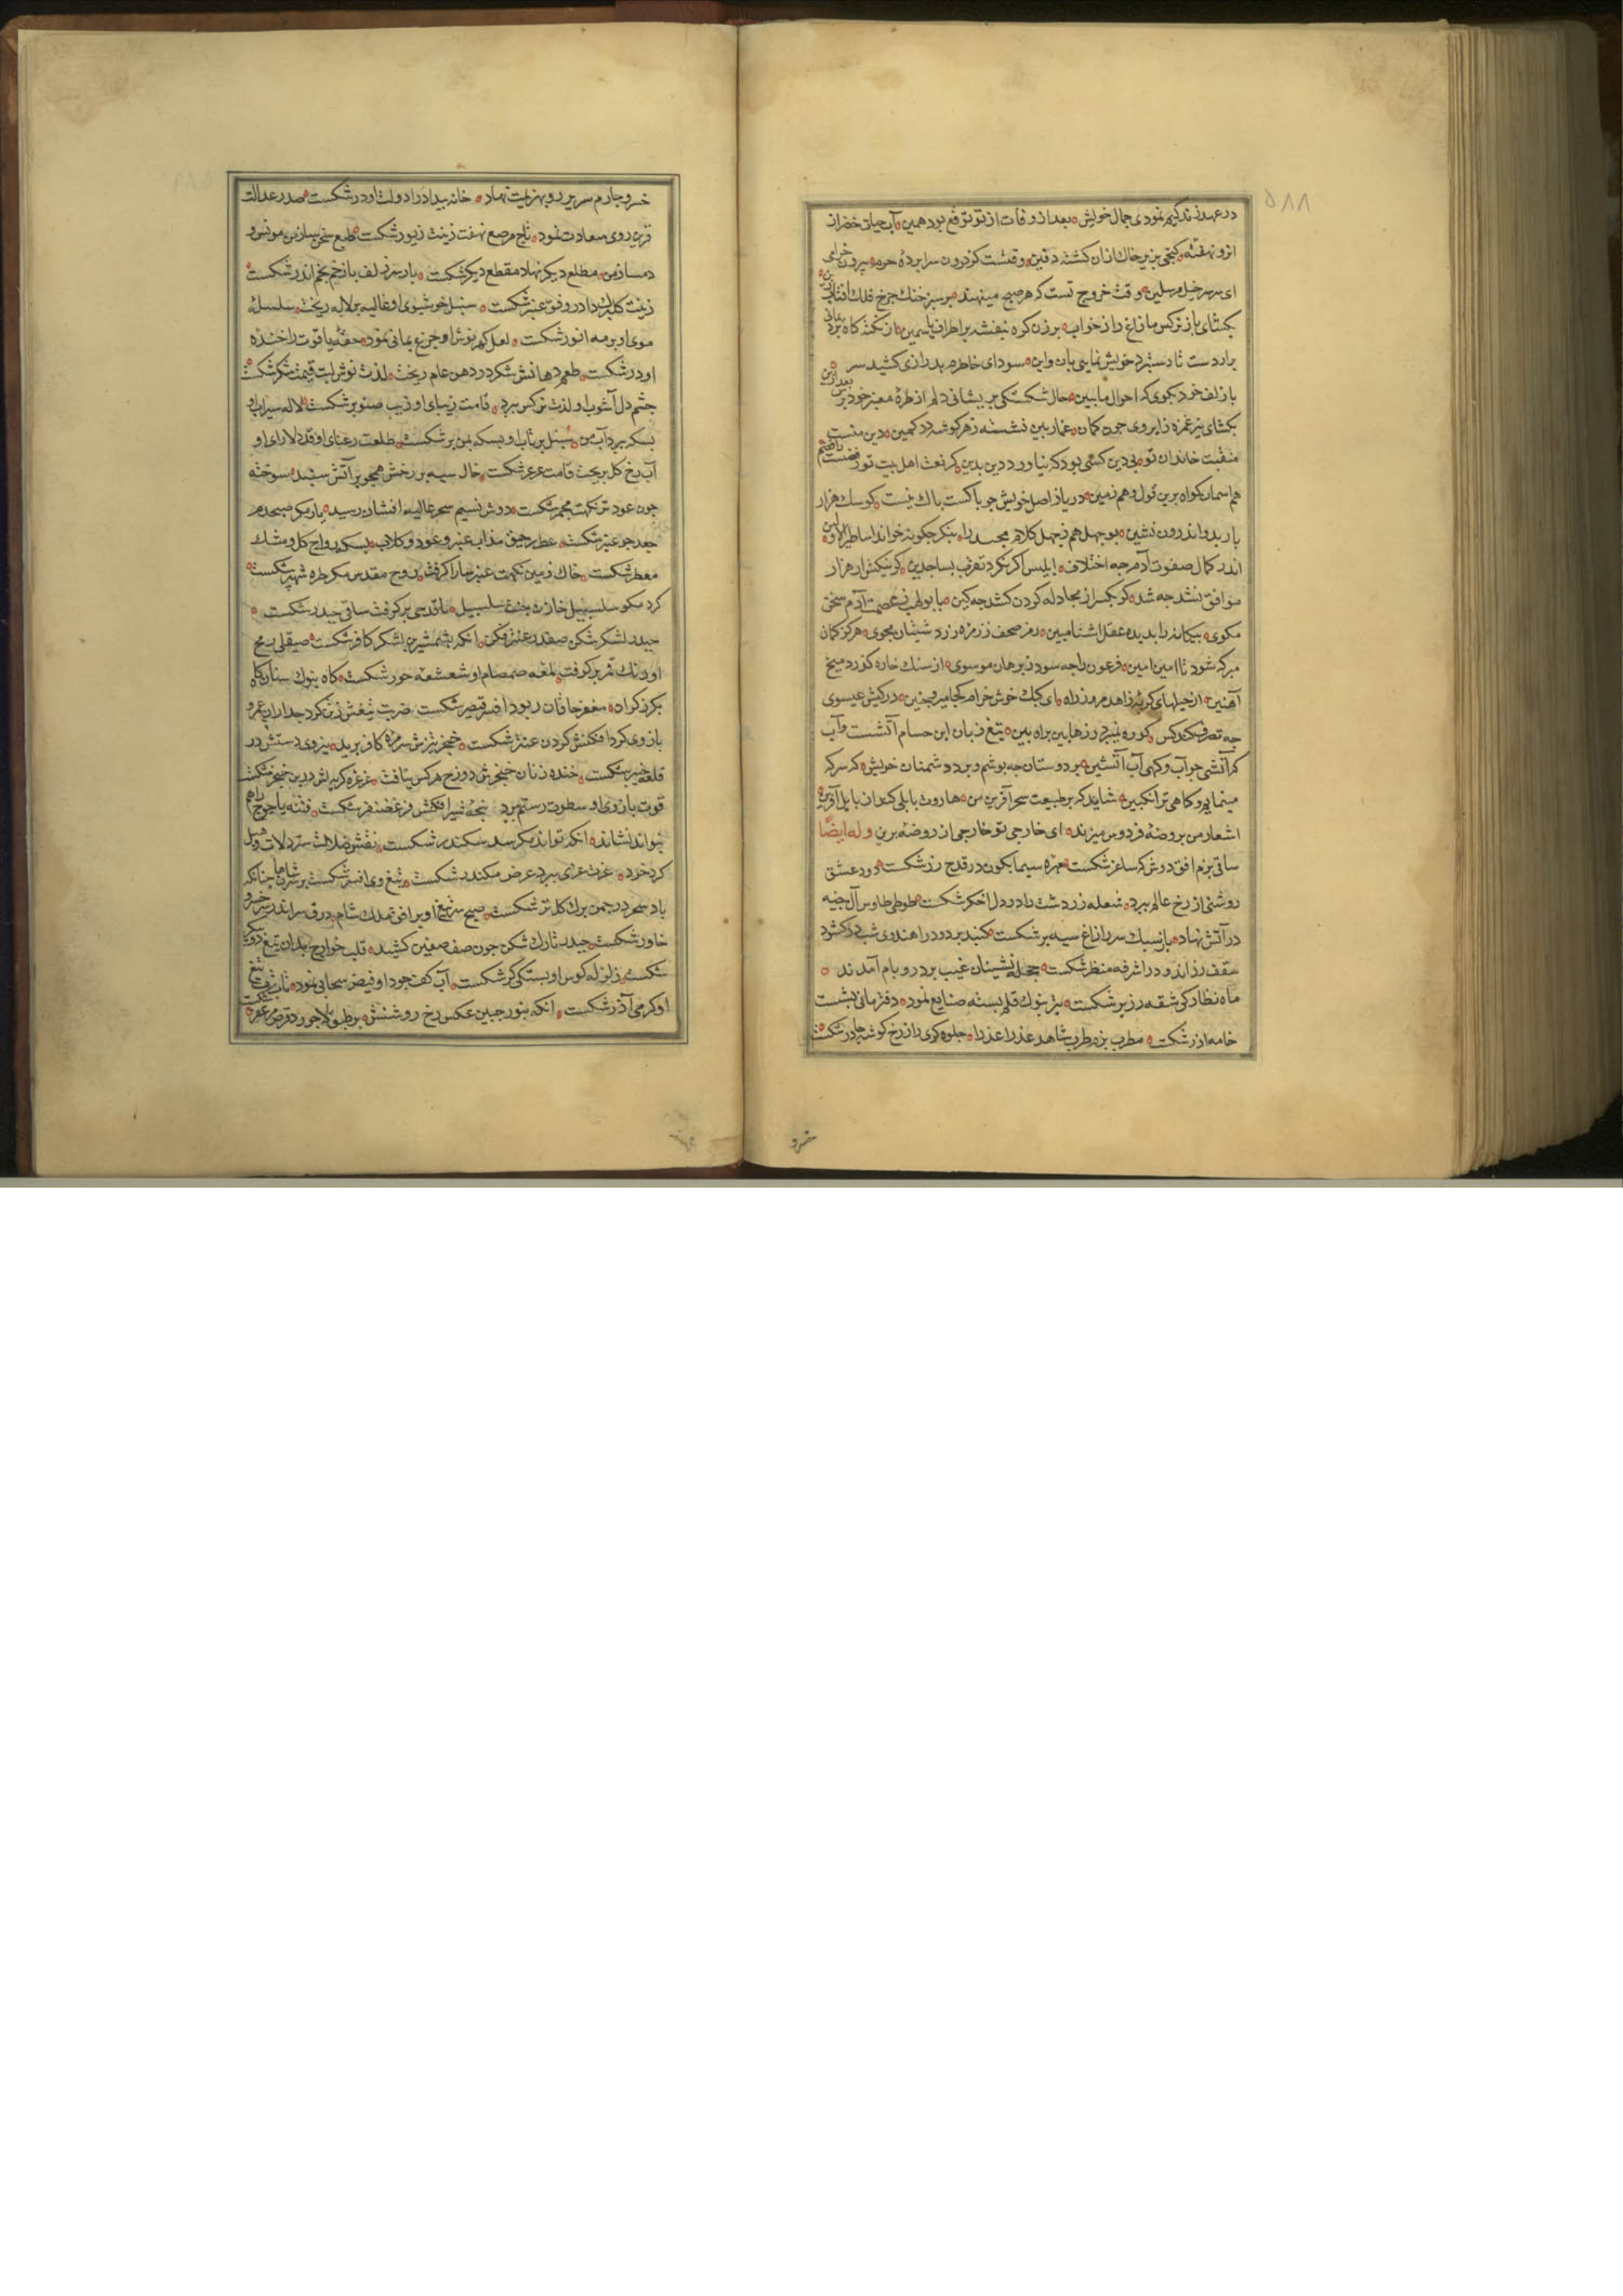 ۵۸۸
در عهد زندگیم نمودی جمال خویش بعد از وفات از تو توقع بود همین آب حیاتی خضر از
انرو نهفته کنجی بزیر خاک ازان کشته دفین وقتست کز درون سرابرده حرم بیرون خرامی
ای سرخیل مرسلین وقت خروج تست که هر صبح مینهند بر سبز خنک چرخ فلک افتاب زین
بکشای باز نرکس مازاغ را ز خواب برزن کره بنفشه بر اطراف یاسمین از نکته کاه برد یمانی
برار دست تا دستبرد خویش نمایی بان و این سودای خاطرم بدرازی کشید سر
باز زلف خود بجوی که احوال ما ببین حال شکستکی پریشانی دلم از طره معنبر خود برس بعد ازین
بکشای تیر غمزه ز ابروی چون کمان غماز بین نشسته ز هر کوشه در کمین دین منست
منقبت خاندان تو بی دین کسی بود که نیاورد دین بدین کر نعت اهل بیت تو رفضست رافضیم
هم اسمان کواه برین قول و هم زمین دریا ز اصل خویش چو باکست باک نیست کو سک هزار
بار بدو اندرون نشین بوجهل هم ز جهل کلام مجید را بنکر جکونه خواند اساطیر الاولین
اندر کمال صفوت آدم چه اختلاف ابلیس اکر نکرد تقرب بساجدین کو یکنفر از هزار
موافق نشد چه شد کو یکسر از مجادله کردن کشد چه کین با بولهب ز عصمت آدم سخن
مکوی بیکانه را بدیده عقل اشنا مبین رمز صحف ز زمزمه زرد شتیان مجوی هرکز کمان
مبر که شود نا امین امین فرعون را چه سود ز برهان موسوی از سنک خاره کذرد میخ
آهنین از حیلهای کربه زاهد مرو ز راه ای کبک خوش خرام کجا میروی چنین در کیش عیسوی
چه تصرف کند کس کو ره نمیبرد ز رهابین براه بین تیغ زبان ابن حسام آتشست و آب
که آتشی چو آب و کهی آب آتشین بر دوستان چه بوشم و بر دشمنان خویش که سرکه
مینمایم و کاهی ترانکبین شاید که بر طبیعت سحر آفرین من هاروت بابلی کند از بابل آفرین
اشعار من بروضه فردوس میزند ای خارجی تو خارجی از روضه برین وله ایضا
ساقی بزم افق دوش که ساغر شکست مهره سیمابکون در قدح زر شکست دود عشق
روشنی از رخ عالم ببرد شعله زردشت را در دل اخکر شکست طوطی طاوس آل بیضه
در آتش نهاد باز سبک سر ز زاغ سیه بر شکست کنبد بر دود را هندوی شب در کشود
سقف زر اندود را شرفه منظر شکست حجله نشینان غیب بر در و بام آمدند
ماه نظار کی شقه زر بر شکست تیر بنوک قلم بسته صنایع نمود دفتر مانی بشست
خامه ازر شکست مطرب بزم طرب شاهد عذرا عذار جلوه کری را ز رخ کوشه چادر شکست
خسرو
خسرو چارم سریر رو بهزیمت نهاد خانه بیداد را دولت او در شکست صدر عدالت
قرین روی سعادت نمود تاج مرصع نهفت زینت زیور شکست طبع سخن ساز من مونس و
دمساز من مطلع دیکر نهاد مقطع دیکر شکست یار سر زلف باز خم بخم اندر شکست
زینت کلبرک داد رونق عنبر شکست سنبل خوشبوی او غالیه بر لاله ریخت سلسله
موی او بر مه انور شکست لعل کهر نوش او جزع یمانی نمود حقه یاقوت را خنده
او در شکست طعم دهانش شکر در دهن عام ریخت لذت نوش لبت قیمت شکر شکست
چشم دل آشوب او لذت نرکس ببرد قامت زیبای او زیب صنوبر شکست لاله سیراب او
بسکه ببرد آب من سنبل بر تاب او بسکه بمن بر شکست طلعت رعنای او قد دلارای او
آب رخ کل بریخت قامت عرعر شکست خال سیه بر رخش همچو بر آتش سبند سوخته
چون عود تر نکهت مجمر شکست دوش نسیم سحر غالیه افشان رسید یار مکر صبحدم
جعد چو عنبر شکست عطر رحیق مذاب عنبر و عود و کلاب بسکه روایح کل و مشک
معطر شکست خاک زمین نکهت عنبر سارا کرفت روح مقدس مکر طره شهپر شکست
کرد مکو سلسبیل خازن جنت سلسبیل یا قدحی بر کرفت ساقی حیدر شکست
حیدر لشکر شکن صفدر عنتر فکن انکه بشمشیر دین لشکر کافر شکست صیقلی رمح
او رنک قمر بر کرفت لمعه صمصام او شعشعه خور شکست کاه بنوک سنان کاه
بکرز کران مغفر خاقان ربود افسر قیصر شکست ضربت تیغش ز تن کرد جدا ران عمرو
بازوی کردافکنش کردن عنتر شکست خنجر تیزش سر مره کافر برید نیروی دستش در
قلعه خیبر شکست خنده زنان خنجرش دوزح هر کس بتافت غرغره کریه اش در بن خنجر شکست
قوت بازوی او سطوت رستم ببرد پنجه شیر افکنش فر غضنفر شکست فتنه یاجوج را هم
بتواند نشاند انکه تواند مکر سد سکندر شکست نقش ضلالت سترد لات و هبل
کرد خرد عزت عزی ببرد عرض مکندر شکست تیغ وی افسر شکست بر سر شاهان چنانکه
باد سحر در چمن برک کل تر شکست صبح سر تیغ او بر افق ملک شام رونق سر اندر سر خسرو
خاور شکست حیدر تارک شکن چون صف صفین کشید قلب خوارج بدان تیغ دو پیکر
شکست زلزله کوس او بستکی کر شکست آب کف جود او فیض سحابی نمود تاب تف تیغ
او کرمی آذر شکست انکه بنور جبین عکس رخ روشنش بر طبق لاجورد قرص مزعفر شکست